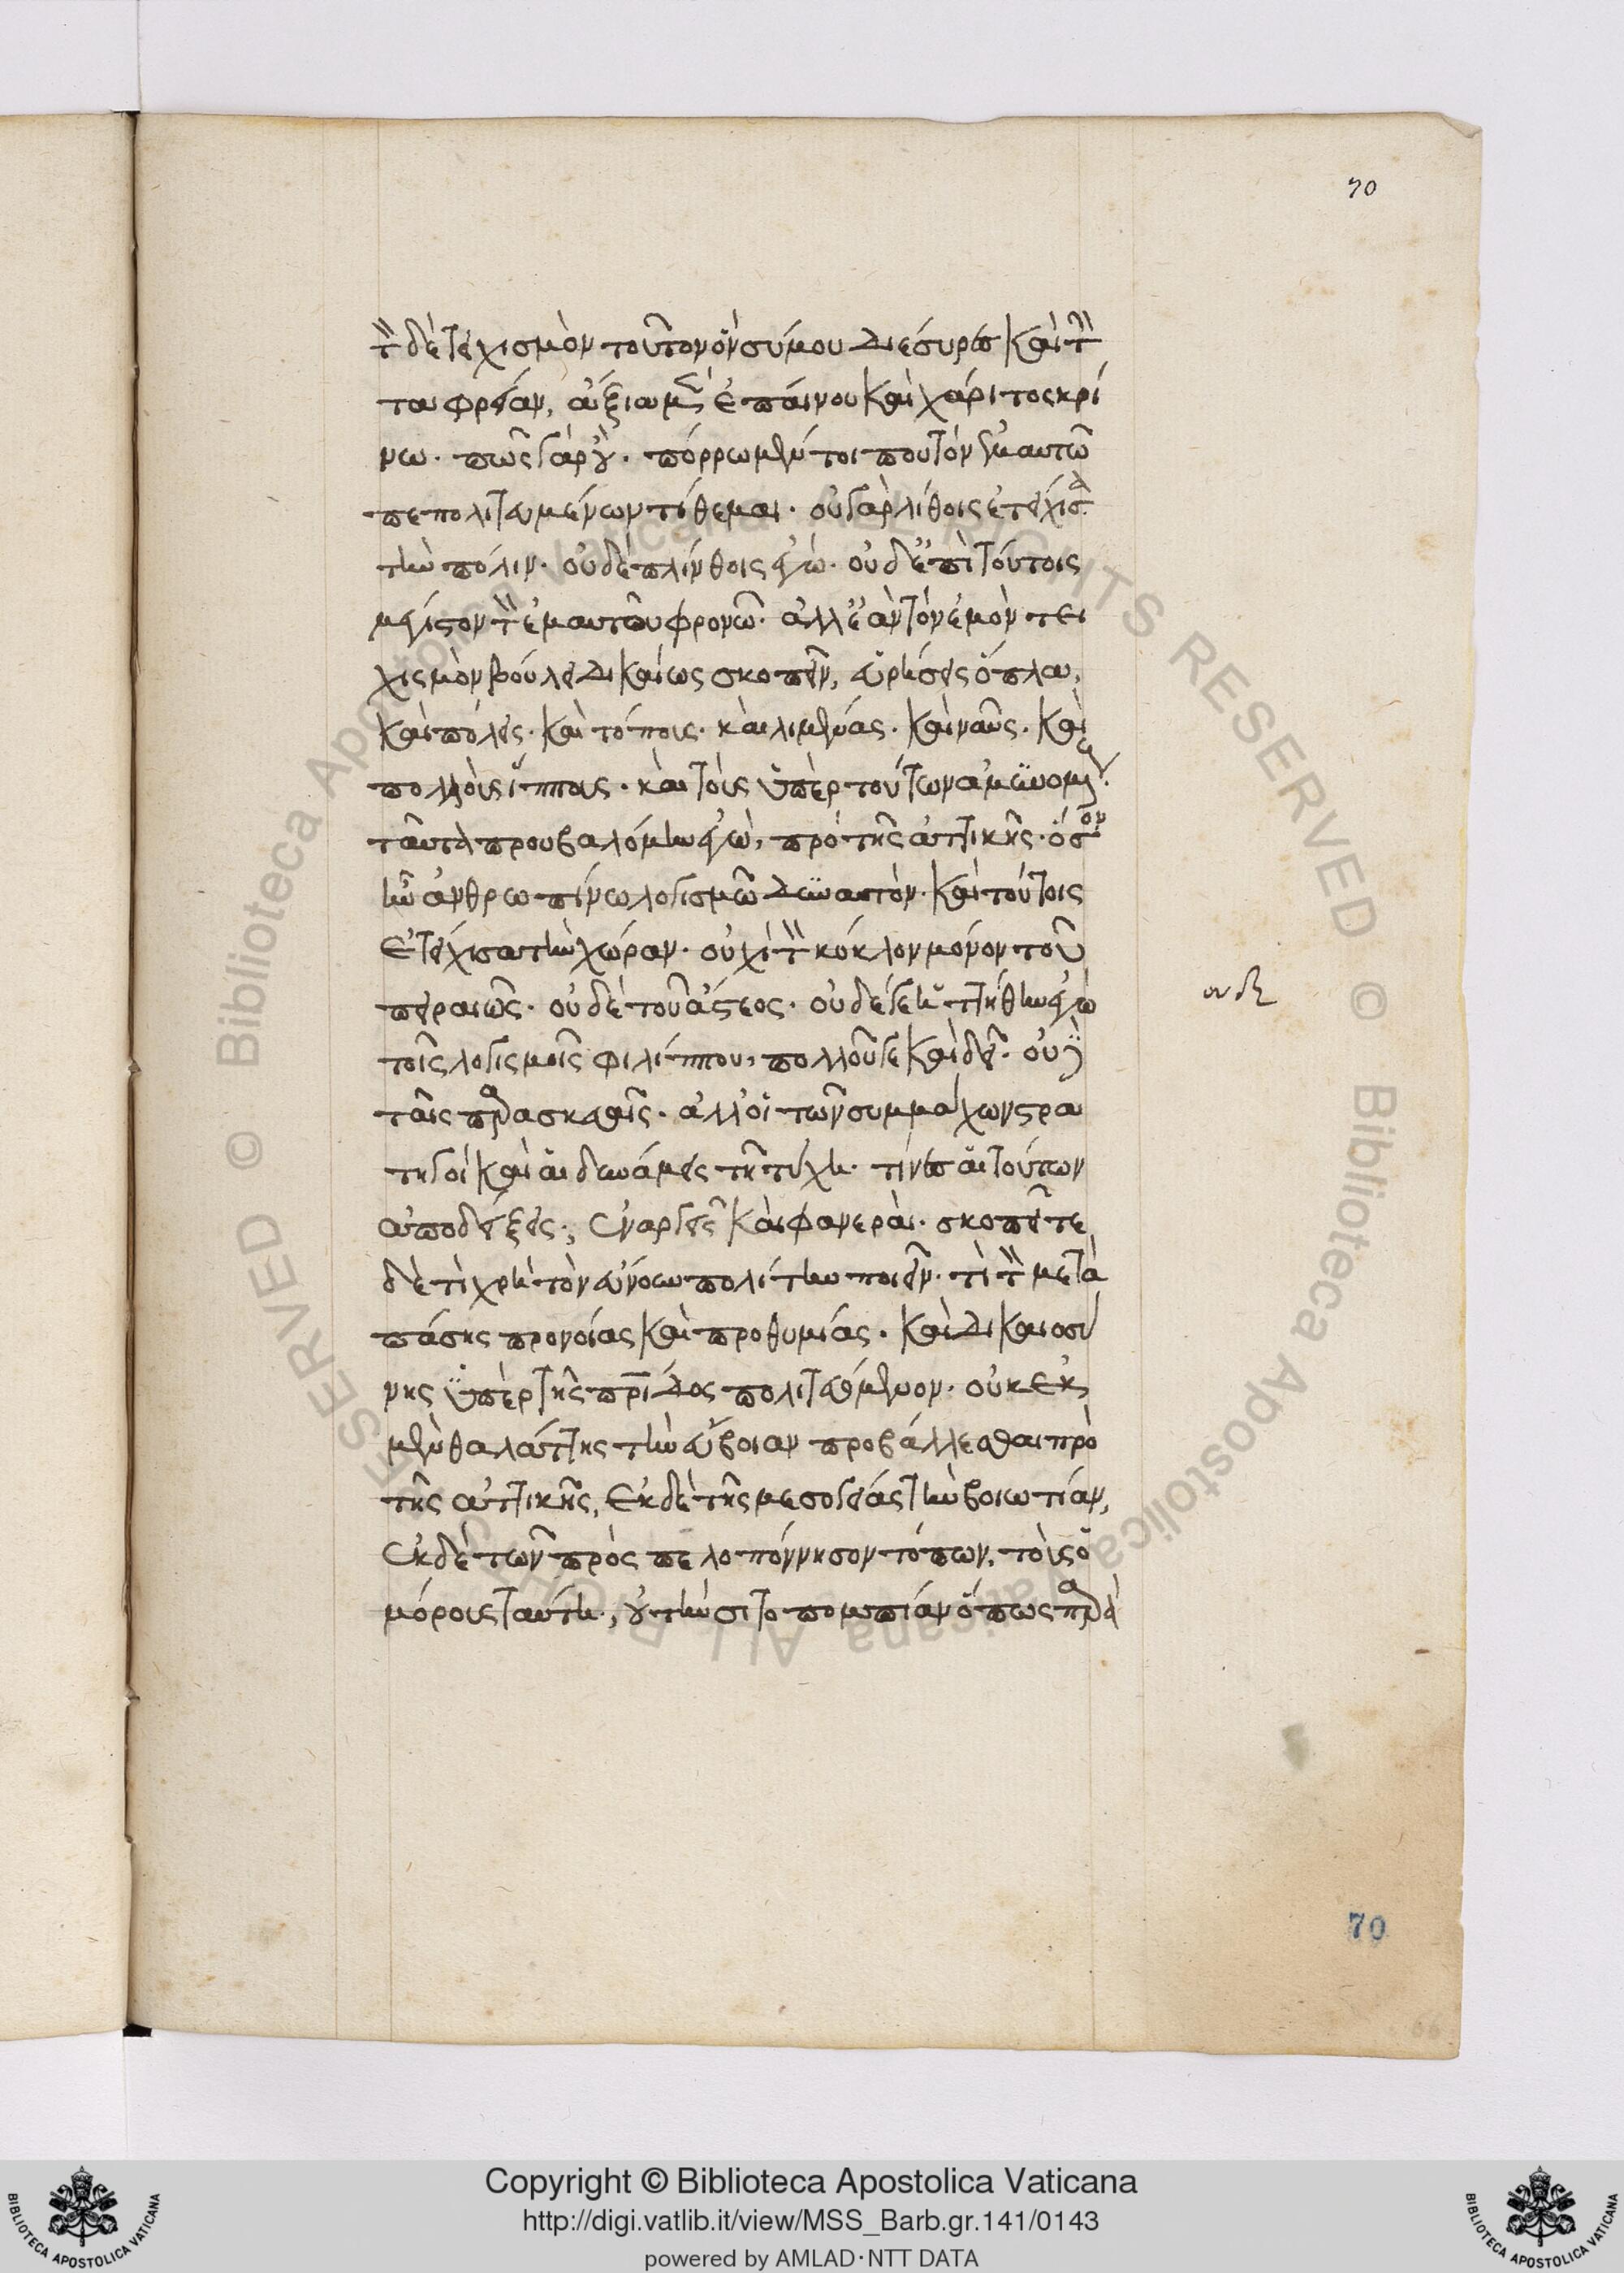 τὸν δὲ τειχισμὸν τοῦτον ὃν σύ μου διέσυρες καὶ τὴν
ταφρείαν, ἄξια μὲν ἐπαίνου καὶ χάριτος κρί
νω. πῶς γὰρ οὔ. πόρρω μέν τοι που τῶν ἐμαυτῷ
πεπολιτευμένων τίθεμαι. οὐ γὰρ λίθοις ἐτείχισα
τὴν πόλιν. οὐδὲ πλίνθοις ἐγώ. οὐδ' ἐπὶ τούτοις
μέγιστον τῶν ἐμαυτοῦ φρονῶ. ἀλλ' ἐὰν τὸν ἐμὸν τει
χισμὸν βούλει δικαίως σκοπεῖν, εὑρήσεις ὅπλα,
καὶ πόλεις. καὶ τόπους. καὶ λιμένας. καὶ ναῦς. καὶ
πολλοὺς ἵππους. καὶ τοὺς ὑπὲρ τούτων ἀμυνομένους.
ταῦτα προυβαλόμην ἐγώ, πρὸ τῆς ἀττικῆς. ὅσον
ἦν ἀνθρωπίνω λογισμῶ δυνατόν. καὶ τούτοις
ἐτείχισα τὴν χώραν. οὐχὶ τὸν κύκλον μόνον τοῦ
πειραιῶς. οὐδὲ τοῦ ἄστεος. οὐδέ γε ἡττήθην ἐγὼ
τοῖς λογισμοῖς φιλίππου, πολλοῦ γε καὶ δεῖ. οὐδὲ
ταῖς παρασκευαῖς. ἀλλ' οἱ τῶν συμμάχων στρα
τηγοὶ καὶ αἱ δυνάμεις τῆ τύχη. τίνες αἱ τούτων
ἀποδείξεις; ἐναργεῖς καὶ φανεραί. σκοπεῖτε
δὲ τί χρὴ τὸν εὔνουν πολίτην ποιεῖν. τί τὸν μετὰ
πάσης προνοίας καὶ προθυμίας. καὶ δικαιοσύ
νης ὑπὲρ τῆς πρίδος πολιτευόμενον. οὐκ ἐκ
μὲν θαλάττης τὴν εὔβοιαν προβάλλεσθαι πρὸ
τῆς ἀττικῆς, ἐκ δὲ τῆς μεσογείας τὴν βοιωτίαν,
ἐκ δὲ τῶν πρὸς πελοπόννησον τόπων, τοὺς ὁ
μόρους ταύτη, οὐ τὴν σιτοπομπίαν ὅπως παρὰ
70
70
Copyright © Biblioteca Apostolica Vaticana
http://digi.vatlib.it/view/MSS_Barb.gr.141/0143
powered by AMLAD·NTT DATA